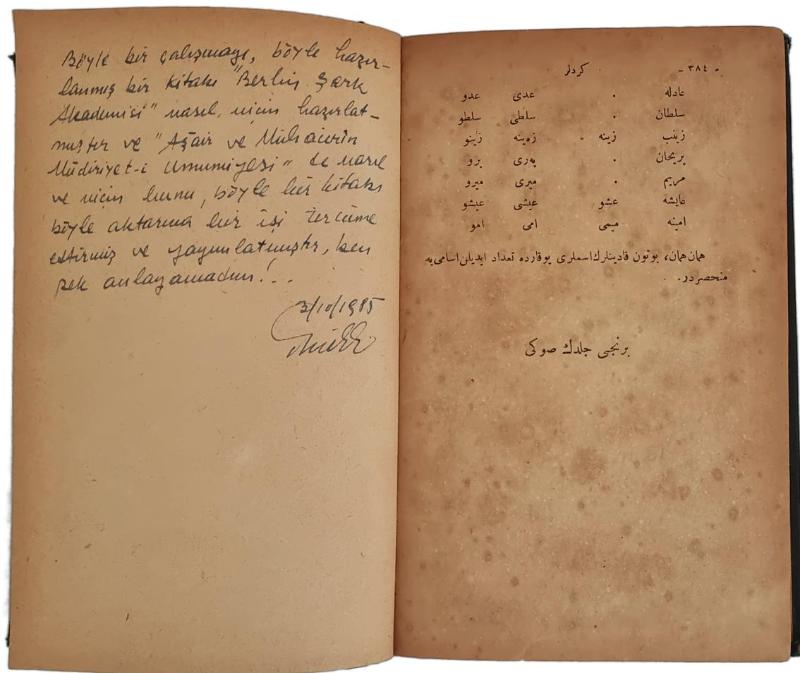 Böyle bir çalışmayı, böyle hazır-
lanmış bir kitabı "Berlin Şark
Akademisi" nasıl, niçin hazırlat-
mıştır ve "Aşair ve Muhacirîn
Müdiriyet-i Umumiyesi" de nasıl
ve niçin bunu, böyle bir kitabı
böyle aktarma bir işi tercüme
ettirmiş ve yayınlatmıştır, ben
pek anlayamadım!..
3/10/1985
- ٣٨٤ - كردلر
عادله . عدی عدو
سلطان . سلطی سلطو
زینب زینه . زینو
پریحان . پەری پرو
مریم . میری میرو
عایشه عشو عیشی عیشو
امینه میمی امی امو
همان همان، بوتون قادینلرك اسملری یوقارده تعداد ایدیلن اسامی‌یه
منحصردر.
برنجی جلدك صوكی